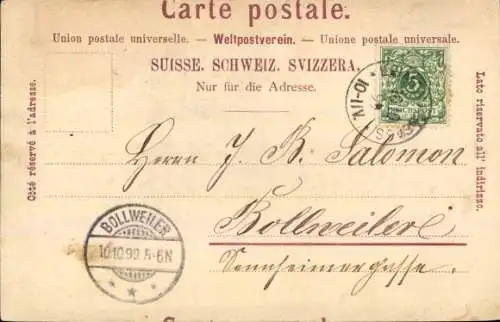 Carte postale.
Union postale universelle. — Weltpostverein. — Unione postale universale.
SUISSE. SCHWEIZ. SVIZZERA.
Nur für die Adresse.
Côté réservé à l'adresse.
Lato riservato all' indirizzo.
5
10-11V.
Herrn J. B. Salomon
Bollweiler
Sennheimergasse.
BOLLWEILER
10.10.99. 5-6N